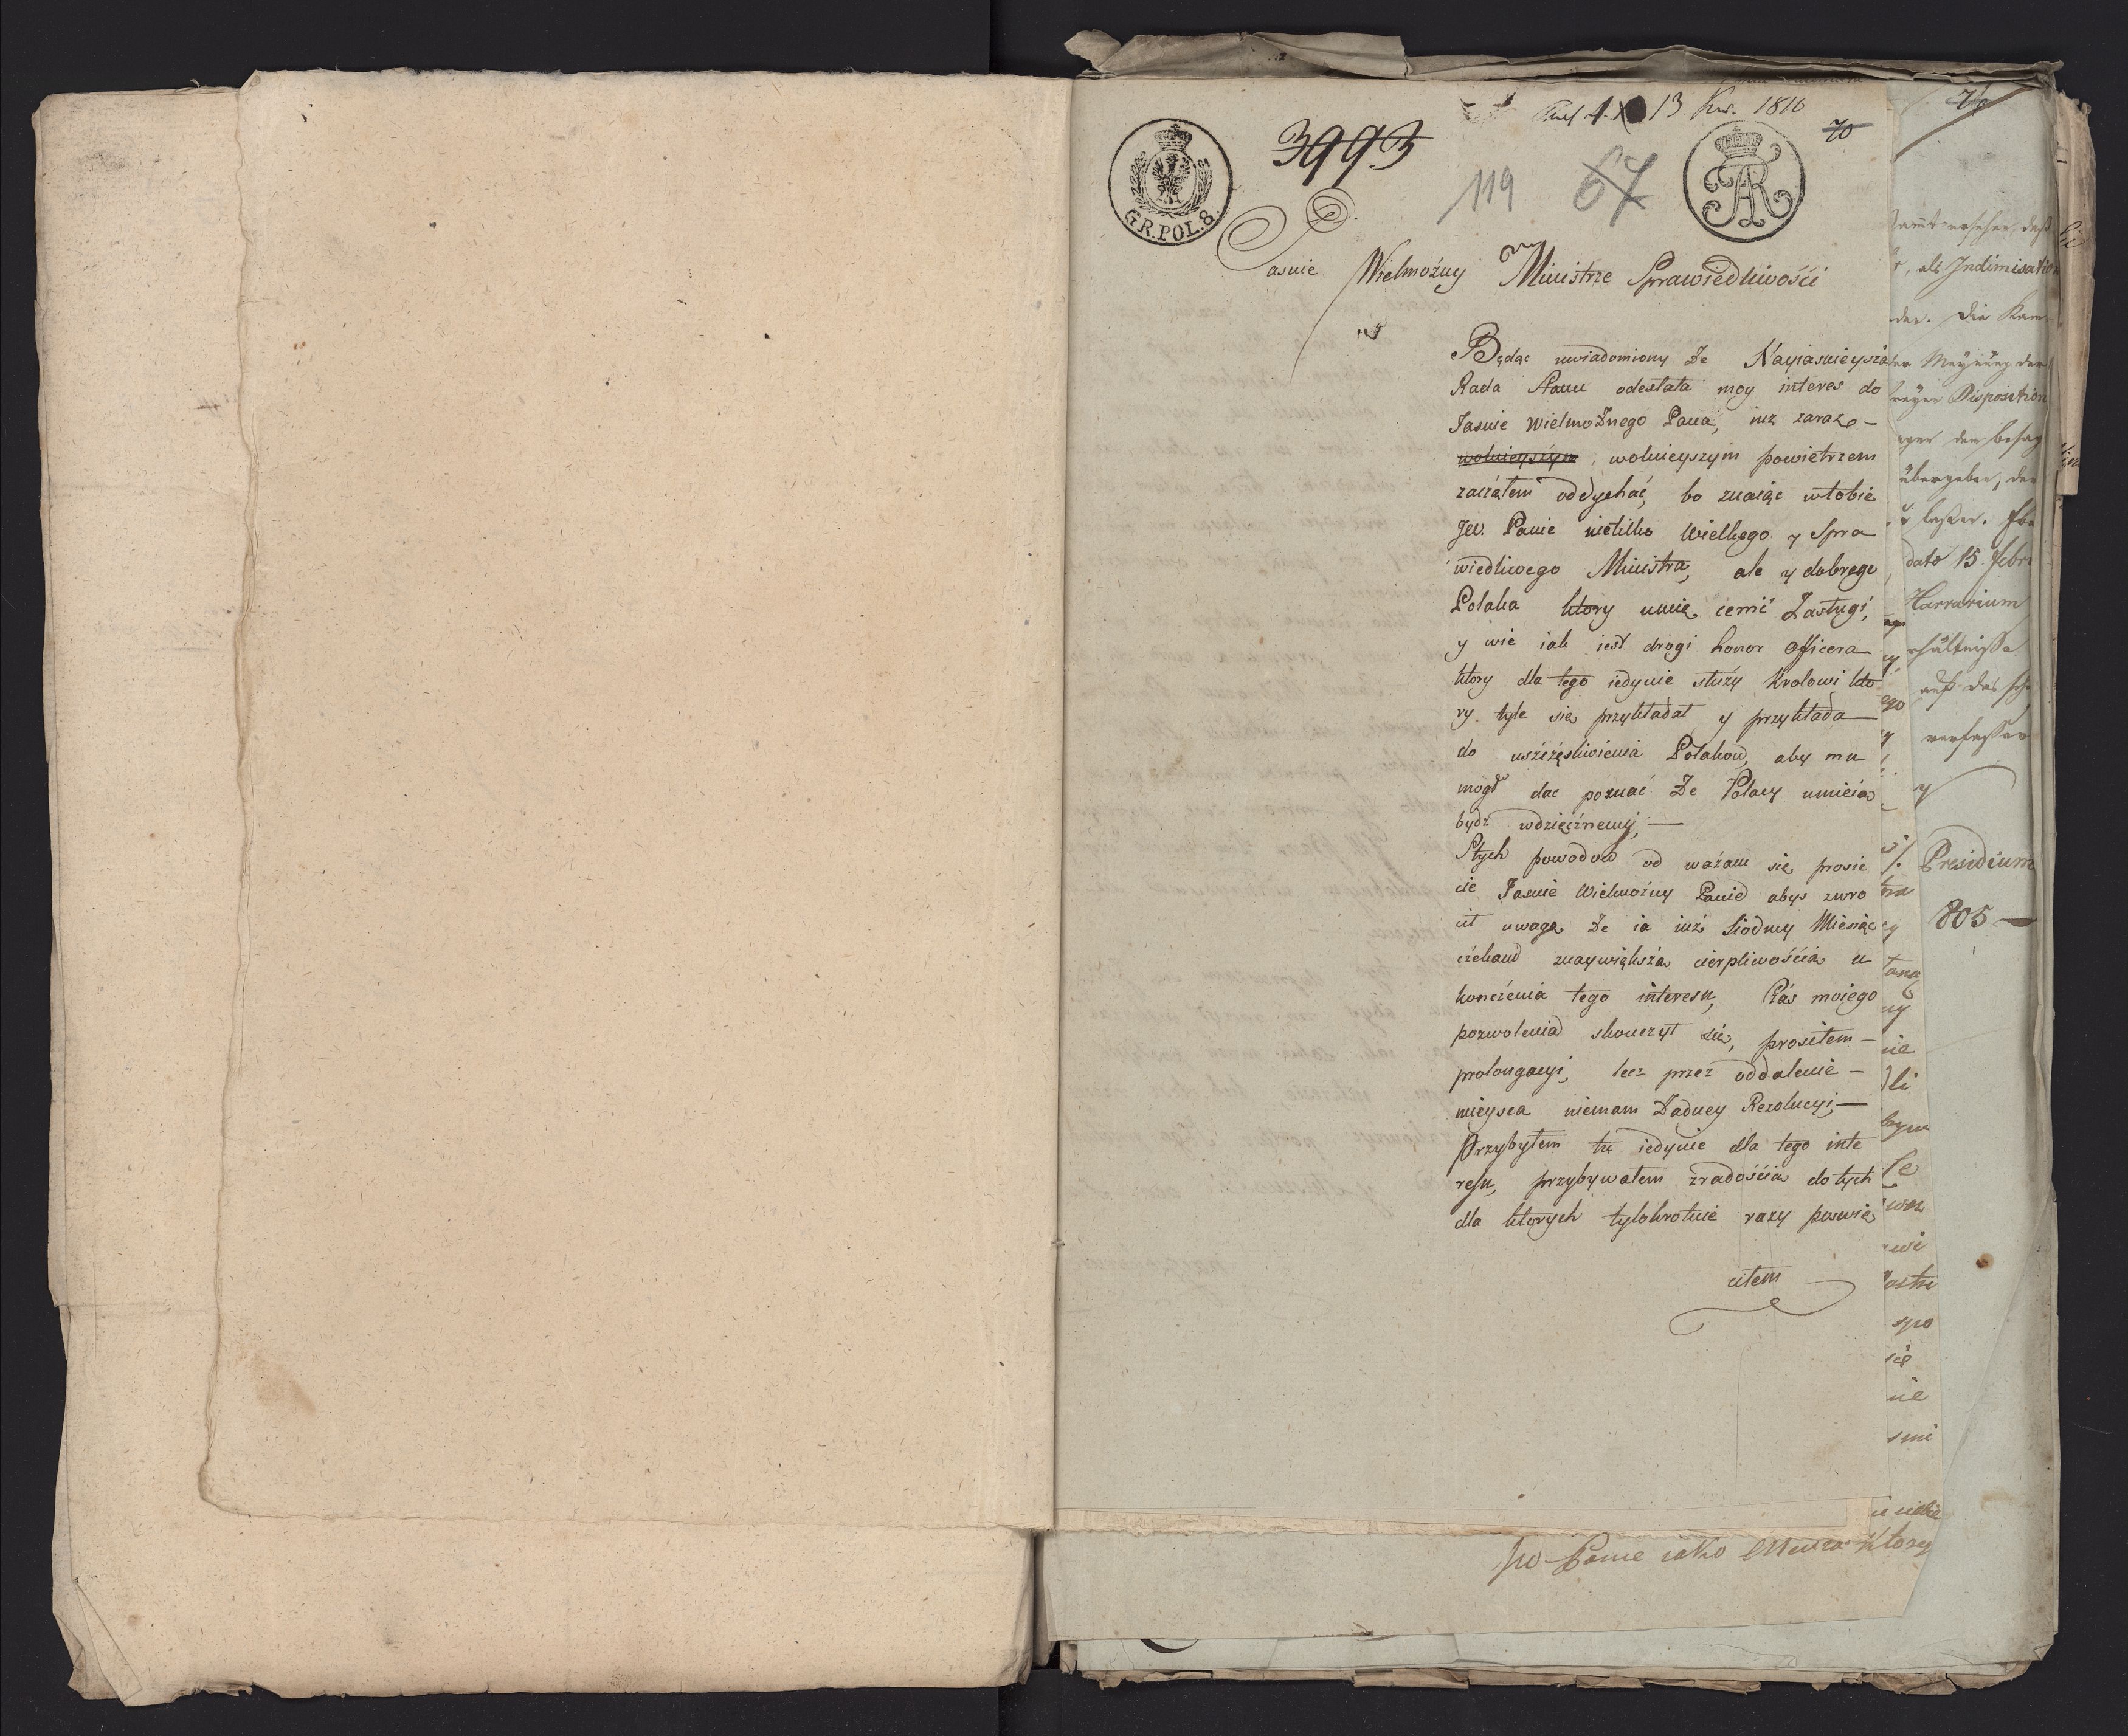 13 Kw. 1810
70
3993
119 67
GR.POL.8.
Jasnie Wielmożny Ministrze Sprawiedliwości
Będąc uwiadomiony że Nayiasnieysza
Rada Stanu odesłała moy interes do
Jasnie Wielmożnego Pana, iuż zaraz –
wolnieyszym wolnieyszym powietrzem
zacząłem oddychać, bo znaiąc w tobie
JW. Panie nietilko Wielkiego y Spra
wiedliwego Ministra, ale y dobrego
Polaka ktory umie cenić Zasługi,
y wie iak iest drogi honor Officera
ktory dla tego iedynie służy Krolowi kto
ry tyle się przykładał y przykłada
do uszczęsliwienia Polakow, aby mu
mogł dac poznać że Polacy umieią
bydz wdzięcznemi, —
Stych powodow od ważam się prosic
cie Jasnie Wielmożny Panie abys zwro
cił uwagę że ia iuż Siodmy Miesiąc
czekam znaywiększą cierpliwością u
konczenia tego interesu, Czas moiego
pozwolenia skonczył się, prosiłem –
prolongacyi, lecz przez oddalenie –
mieysca niemam żadney Rezolucyi, —
Przybyłem tu iedynie dla tego inte
resu, przybywałem zradością do tych
dla ktorych tylokrotnie razy poswię
ciłem
JW Panie iako ktory
als Indimisation
Disposition
dato 15 Febr
Aerarium
Presidium
805 —